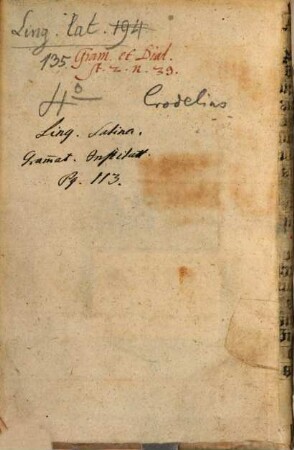 Ling. lat. 194
135. Gram. et Dial.
st. 2. n. 33.
4° Crodelius
Ling. Latina.
Gram̄at. Instituti.
Pg. 113.